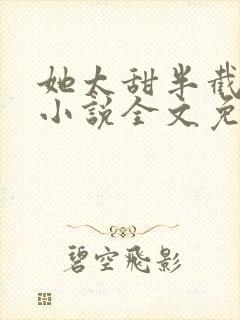 她太甜半截
小说全文免
碧空飞影